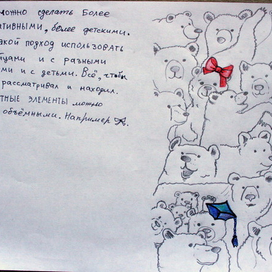 можно сделать более
ативными, более детскими.
акой подход использовать
ицами и с разными
ами и с детьми. Всё, чтобы
рассматривал и находил.
тные элементы можно
объёмными. Например